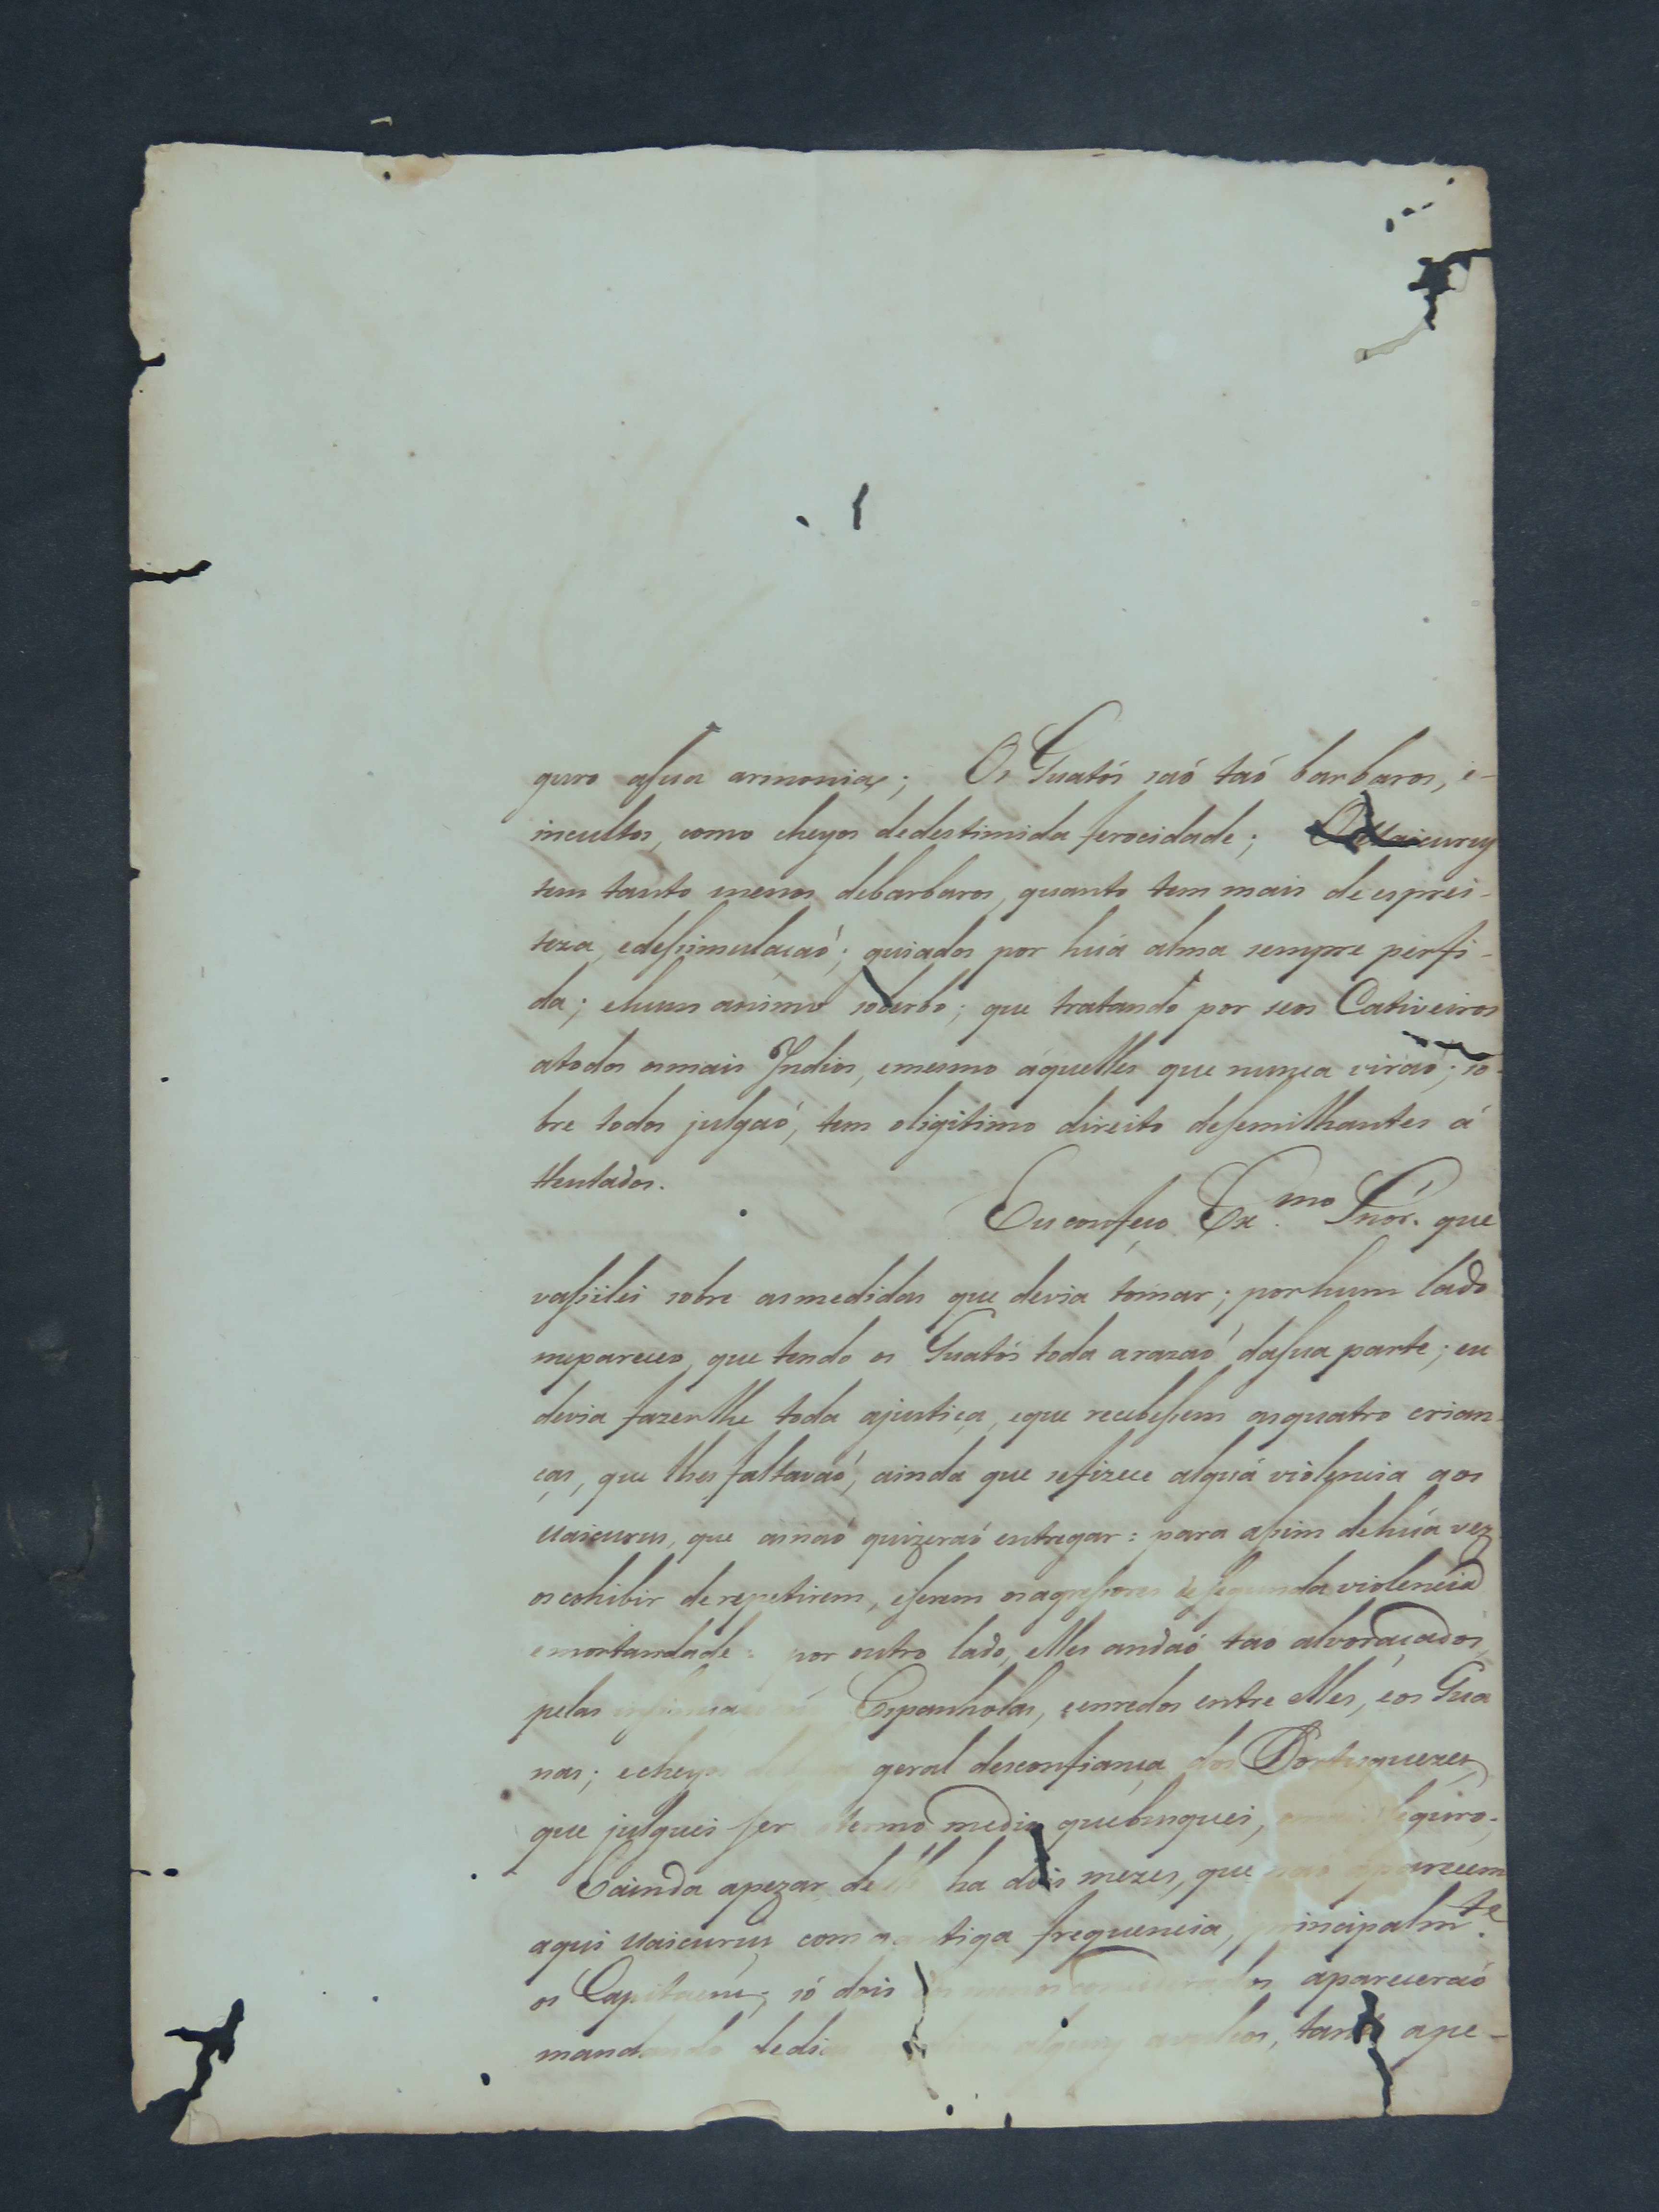 guro asua armonia; Os Guatós saó taó barbaros, e-
incultos, como cheyos dedestimida ferocidade; Os Uaicurus
tem tanto menos debarbaros, quanto tem mais de esprei-
teza, edesimulaçaó; guiados por huá alma sempre perfi-
da; ehum animo soberbo; que tratando por seos Cativeiros
atodos osmais Indios, emesmo áquelles que nunca viraó; so-
bre todos julgaó, tem oligitimo direito desemilhantes á
ttentados.
Eu confeço Ex.mo Snór. que
vassilei sobre asmedidas que devia tomar; porhum lado
mepareceo, que tendo os Guatós toda arazaó dasua parte; eu
devia fazerlhe toda ajustiça, eque recebessem asquatro crian-
ças, que lhes faltavaó, ainda que sefizece alguá violencia aos
Uaicurus, que asnaó quizeraó entregar: para assim dehuá vez
oscohibir derepetirem, eserem osagressores de segunda violencia
emortandade: por outro lado, elles andaó tao alvoraçados,
pelas Espanholas, eenredos entre elles, eos Gua
nas; echeyos geral desconfiança dos Portuguezes,
que julguei ser termo medio quebusquei, seguro;
Eainda apezar delle ha dois mezes, que naó aparecem
aqui Uaicurus com antiga frequencia, principalm.te
os Capitaens; só dois dos menos considerados apareceraó
mandando dedi avulços, tanto ape-